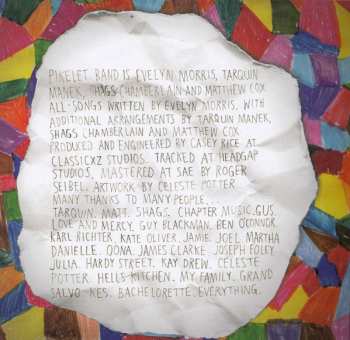 PIKELET BAND IS EVELYN MORRIS, TARQUIN
MANEK, SHAGS CHAMBERLAIN AND MATTHEW COX
ALL SONGS WRITTEN BY EVELYN MORRIS, WITH
ADDITIONAL ARRANGEMENTS BY TARQUIN MANEK,
SHAGS CHAMBERLAIN AND MATTHEW COX
PRODUCED AND ENGINEERED BY CASEY RICE AT
CLASSICXZ STUDIOS. TRACKED AT HEADGAP
STUDIOS, MASTERED AT SAE BY ROGER
SEIBEL. ARTWORK BY CELESTE POTTER
MANY THANKS TO MANY PEOPLE...
TARQUIN. MATT. SHAGS. CHAPTER MUSIC. GUS.
LOVE AND MERCY. GUY BLACKMAN. BEN O'CONNOR.
KARL RICHTER. KATE OLIVER. JAMIE. JOEL. MARTHA
DANIELLE. OONA. JAMES CLARKE. JOSEPH FOLEY
JULIA. HARDY STREET. KAY DREW. CELESTE
POTTER. HELLS KITCHEN. MY FAMILY. GRAND
SALVO. KES. BACHELORETTE. EVERYTHING.